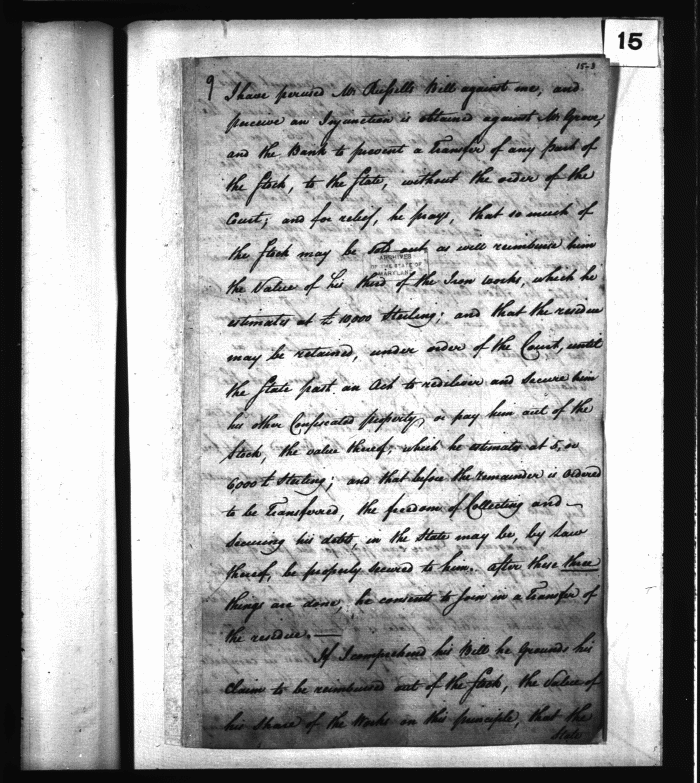 15
15-3
9 I have perused Mr. Russells Bill against me, and
perceive an Injunction is obtained against Mr. Grove,
and the Bank to prevent a Transfer of any part of
the Stock, to the State, without the order of the
Court; and for relief, he prays, that so much of
the Stock may be sold out, as will reimburse him
ARCHIVES
OF THE STATE OF
MARYLAND
the Value of his third of the Iron Works, which he
estimates at £10,000 Sterling; and that the residue
may be retained, under order of the Court, until
the State past an Act to redeliver and secure him
his other Confiscated property, or pay him out of the
Stock, the value thereof; which he estimates at 5, or
6,000 £ Sterling; and that before the remainder is ordered
to be Transferred, the freedom of Collecting and
securing his debts, in the State may be, by Law
thereof, be properly secured to him. After these three
things are done, he consents to join in a Transfer of
the residue.
If I comprehend his Bill he Grounds his
Claim to be reimbursed out of the Stock, the Value of
his share of the Works in this principle, that the
State